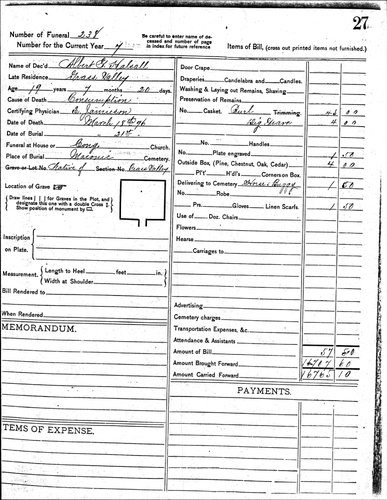 27
Number of Funeral 238
Number for the Current Year 7
Be careful to enter name of deceased and number of page in index for future reference
Items of Bill, (cross out printed items not furnished.)
Name of Dec'd Albert G. Halsall
Late Residence Grass Valley
Age 19 years 7 months 20 days
Cause of Death Consumption
Certifying
Date of Death March 18th 96
Date of Burial 21st
Funeral at House or Cong Church
Place of Burial Masonic Cemetery.
Grave or Lot No. Native of Section No. Grass Valley
Location of Grave
Draw lines for Graves in the Plot, and designate this one with a double Cross
Show position of monument by
Inscription on Plate.
Measurement. Length to Heel feet in.
Width at Shoulder
Bill Rendered to
When Rendered
MEMORANDUM.
TEMS OF EXPENSE.
Door Crape
Draperies Candelabra and Candles.
Washing & Laying out Remains, Shaving
Preservation of Remains
No. Casket Burl Trimming. 45 00
Dig Grave 4 00
No. Handles
Plate engraved 1 50
Outside Box, (Pine, Chestnut, Oak, Cedar) 4 00
P'T'Y H'd'l's Corners on Box
Delivering to Cemetery Horse & Buggy 1 50
No. Robe
Prs. Gloves Linen Scarfs. 1 50
Use of Doz. Chairs
Flowers
Hearse
Carriages to
Advertising
Cemetery charges
Transportation Expenses, &c.
Attendance & Assistants
Amount of Bill 57 50
Amount Brought Forward 16707 60
Amount Carried Forward 16765 10
PAYMENTS.